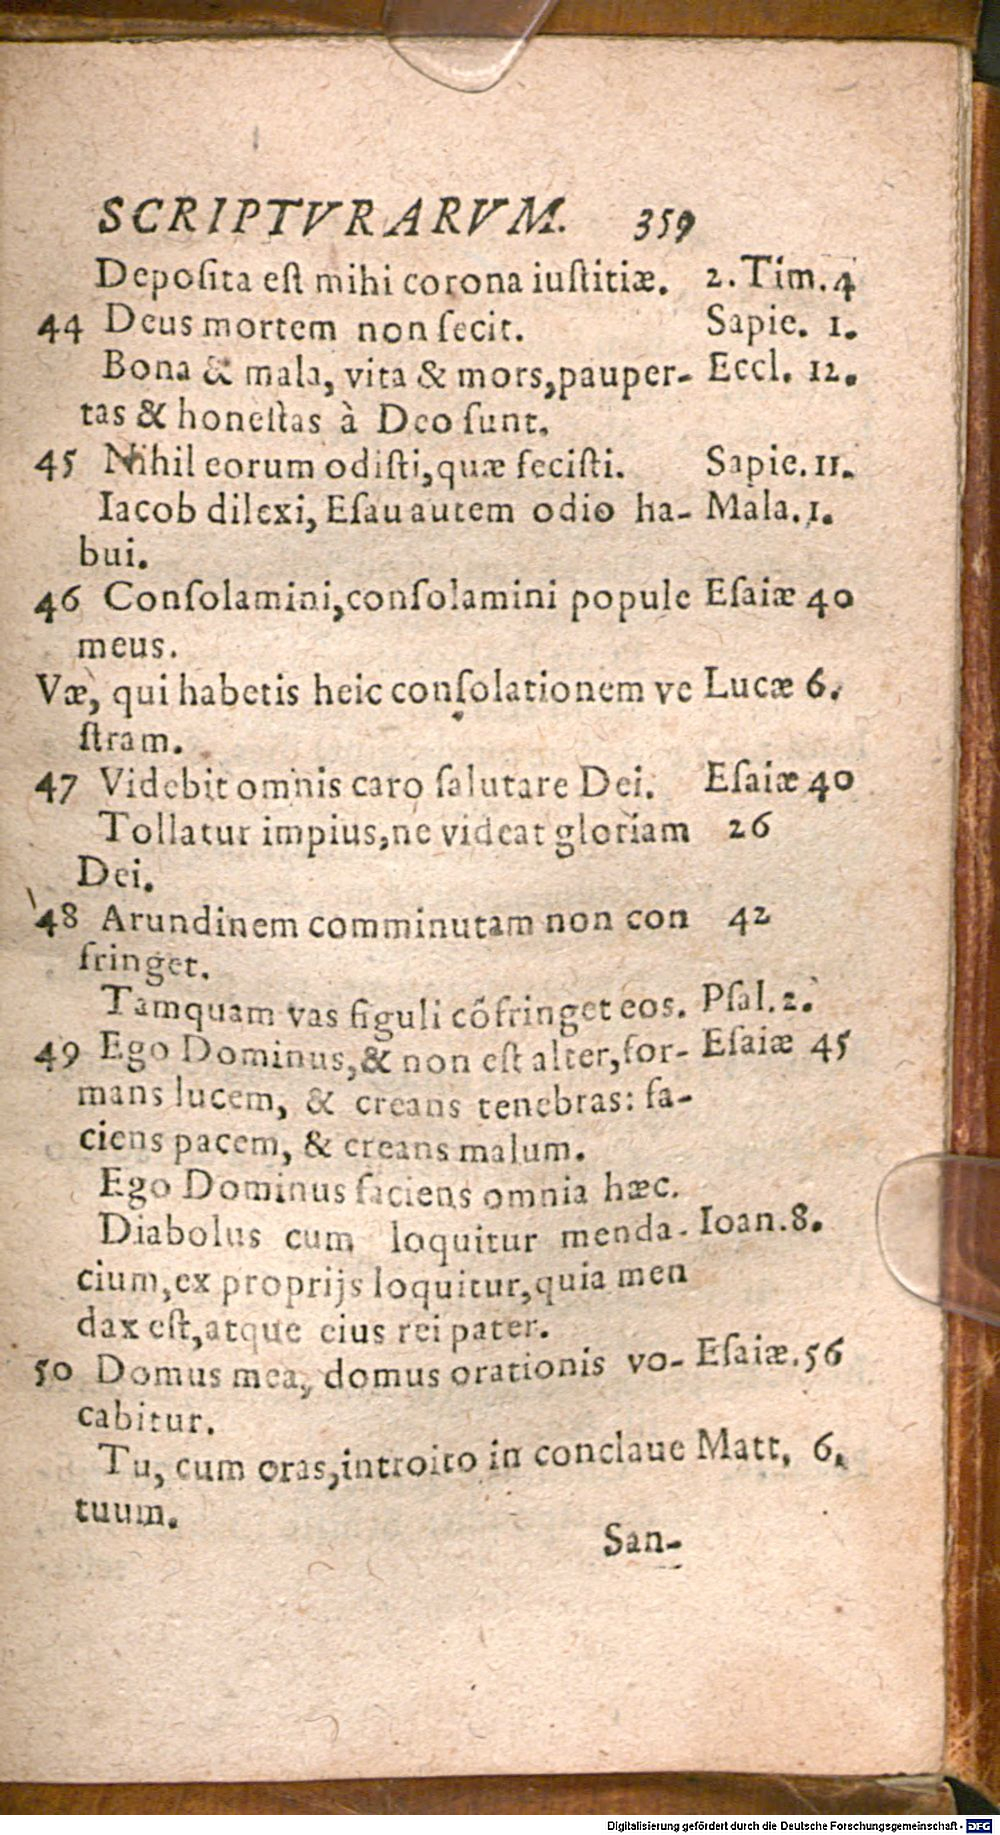 SCRIPTVRARVM. 359
Depoſita eſt mihi corona iuſtitiæ. 2. Tim. 4
44 Deus mortem non fecit. Sapie. 1.
Bona & mala, vita & mors, pauper- Eccl. 12.
tas & honeſtas à Deo ſunt.
45 Nihil eorum odiſti, quæ feciſti. Sapie. 11.
Iacob dilexi, Eſau autem odio ha- Mala. 1.
bui.
46 Conſolamini, conſolamini popule Eſaiæ 40
meus.
Væ, qui habetis heic conſolationem ve Lucæ 6.
ſtram.
47 Videbit omnis caro ſalutare Dei. Eſaiæ 40
Tollatur impius, ne videat gloriam 26
Dei.
48 Arundinem comminutam non con 42
fringet.
Tamquam vas figuli cõfringet eos. Pſal. 2.
49 Ego Dominus, & non eſt alter, for- Eſaiæ 45
mans lucem, & creans tenebras: fa-
ciens pacem, & creans malum.
Ego Dominus faciens omnia hæc.
Diabolus cum loquitur menda- Ioan. 8.
cium, ex proprijs loquitur, quia men
dax eſt, atque eius rei pater.
50 Domus mea, domus orationis vo- Eſaiæ. 56
cabitur.
Tu, cum oras, introito in conclaue Matt. 6.
tuum.
San-
Digitalisierung gefördert durch die Deutsche Forschungsgemeinschaft - DFG